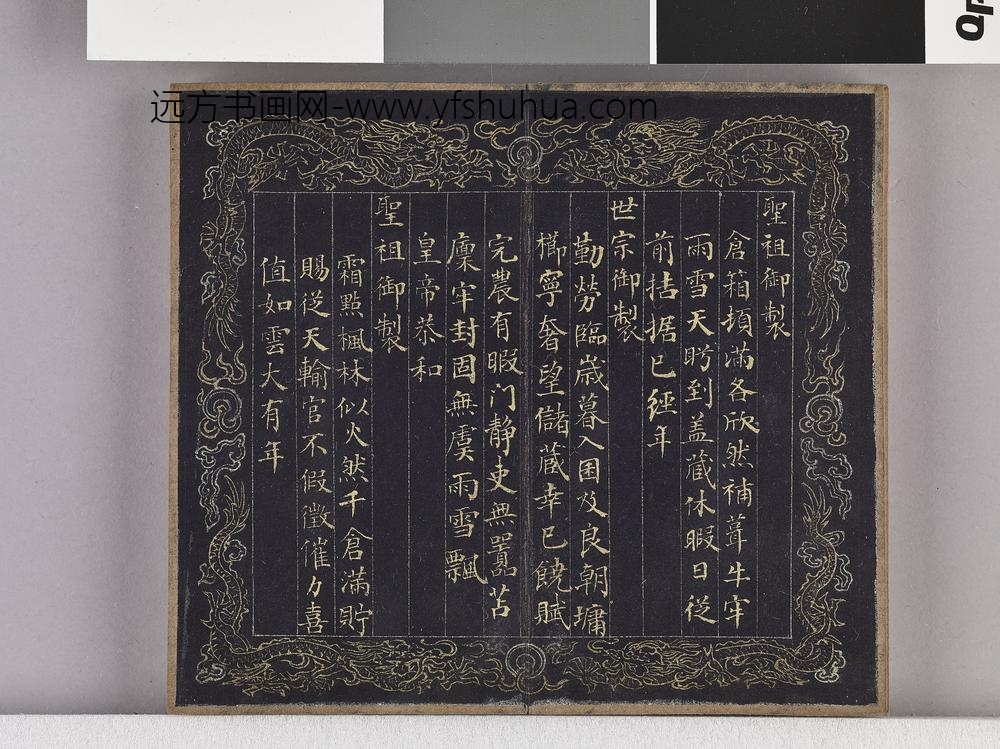 远方书画网-www.yfshuhua.com
聖祖御製
倉箱頓滿各欣然補葺牛牢
雨雪天盼到盖藏休暇日從
前拮据已經年
世宗御製
勤勞臨歲暮入囷及良朝墉
櫛寧奢望儲藏幸已饒賦
完農有暇门静吏無嚻苫
廩牢封固無虞雨雪飄
皇帝恭和
聖祖御製
霜點楓林似火然千倉滿貯
賜從天輸官不假徵催力喜
值如雲大有年